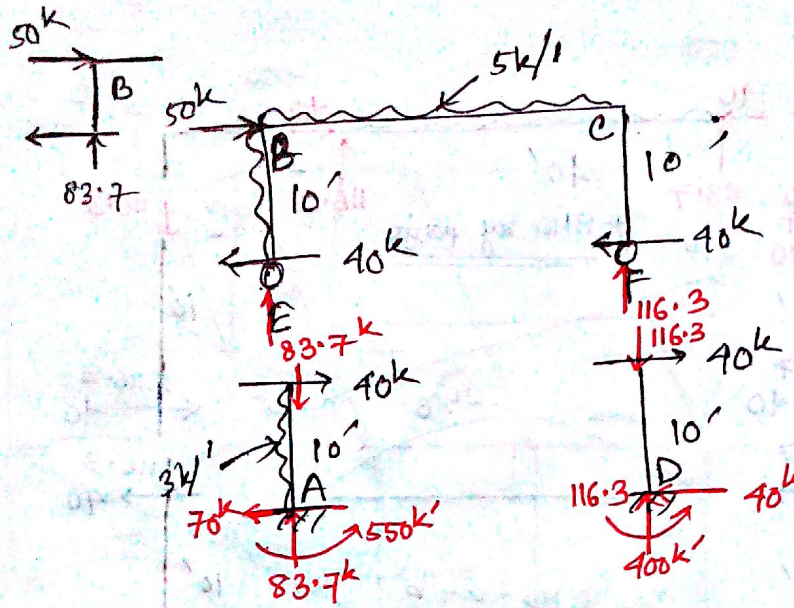 50k
B
83.7
5k/'
50k
B
C
10'
10'
40k
40k
E
F
83.7k
116.3
116.3
40k
40k
3k/'
10'
10'
A
D
70k
550k'
116.3
40k
83.7k
400k'